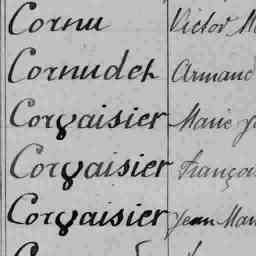 Cornu Victor
Cornudet Armand
Corvaisier Marie
Corvaisier
Corvaisier Jean